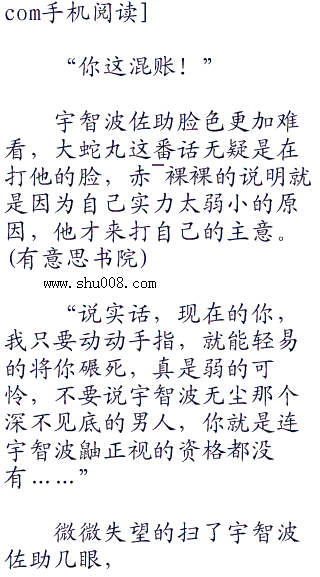 com手机阅读]
“你这混账！”
宇智波佐助脸色更加难
看，大蛇丸这番话无疑是在
打他的脸，赤¯裸裸的说明就
是因为自己实力太弱小的原
因，他才来打自己的主意。
(有意思书院)
www.shu008.com
“说实话，现在的你，
我只要动动手指，就能轻易
的将你碾死，真是弱的可
怜，不要说宇智波无尘那个
深不见底的男人，你就是连
宇智波鼬正视的资格都没
有……”
微微失望的扫了宇智波
佐助几眼，